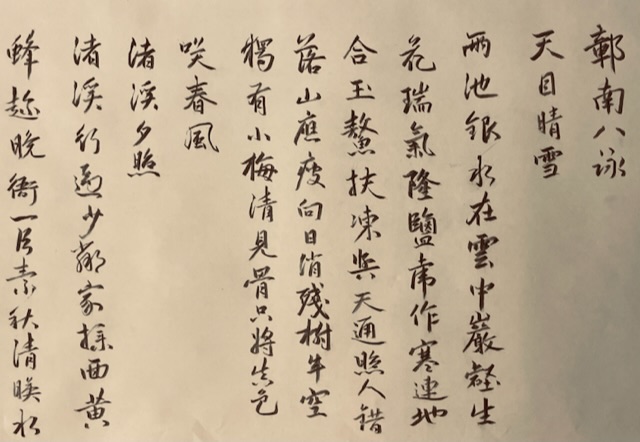 鄣南八詠
天目晴雪
兩池銀水在雲中巖壑生
花瑞氣隆鹽席作寒連地
合玉鰲扶凍與天通照人錯
落山應瘦向日消殘樹半空
獨有小梅清見骨只將真色
笑春風
渚溪夕照
渚溪行過少鄰家採西黃
蜂趁晚衙一片素秋清映水